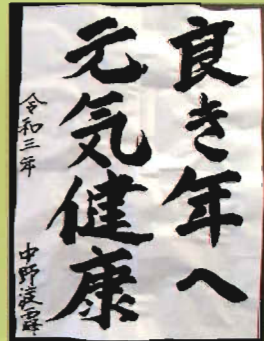 良き年へ
元気健康
令和三年
中野